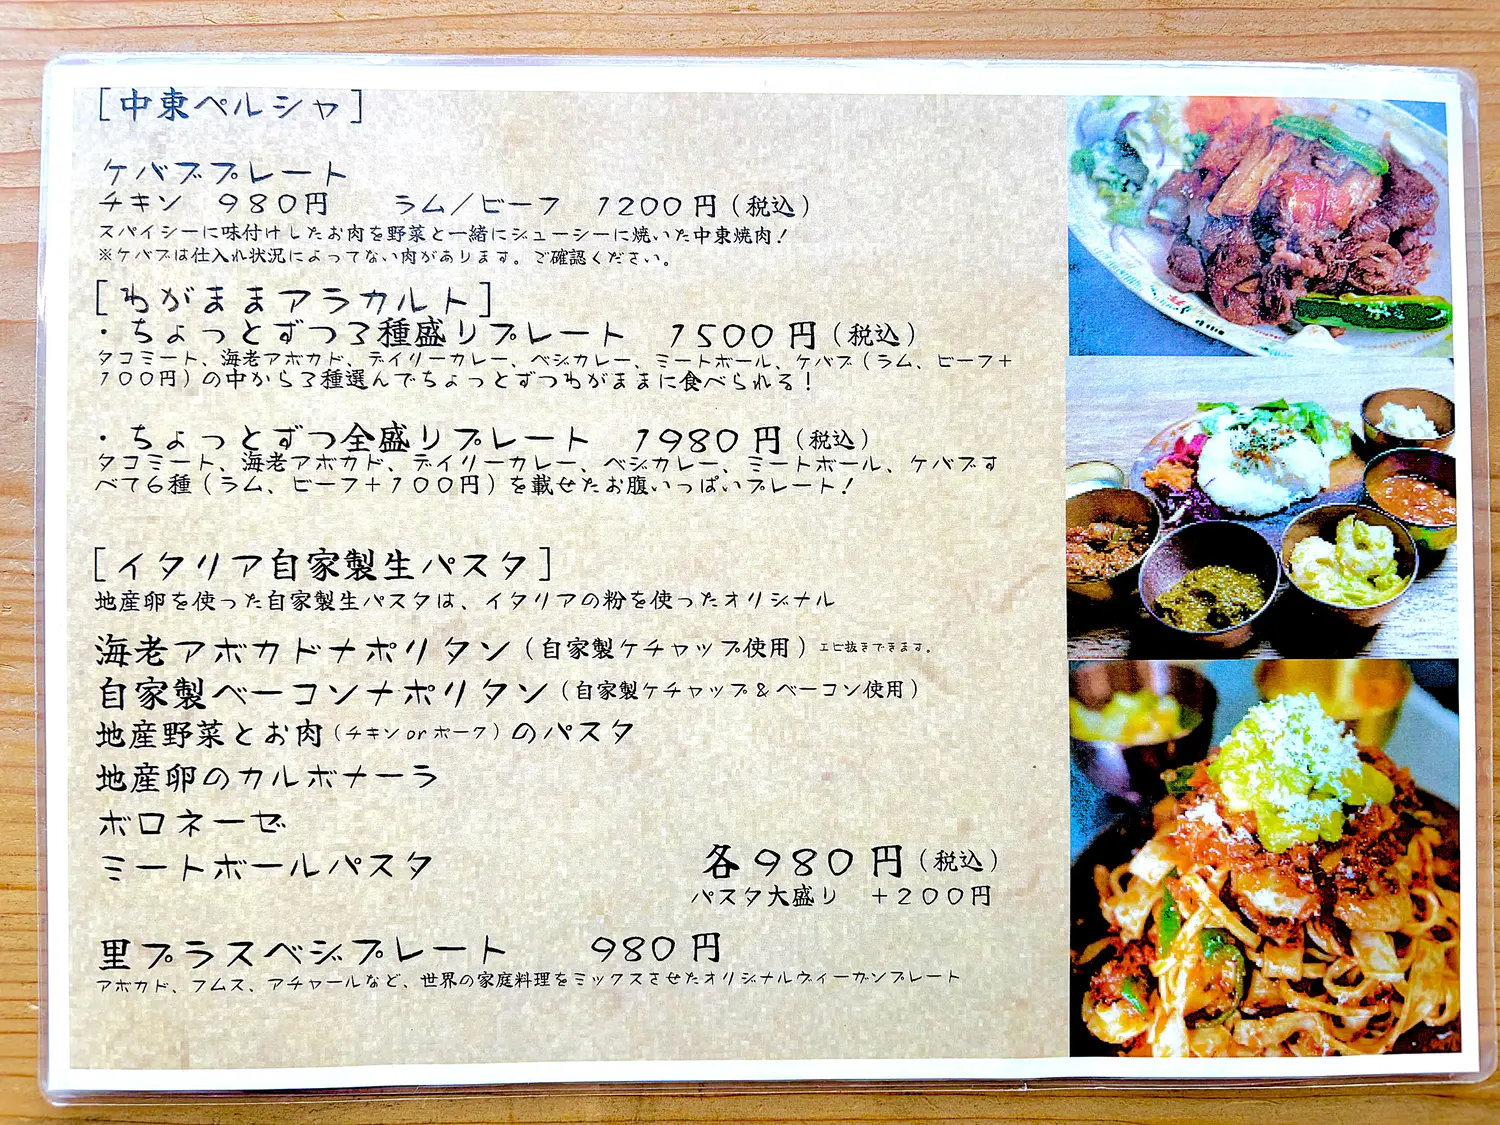 [中東ペルシャ]
ケバブプレート
チキン 980円 ラム/ビーフ 1200円(税込)
スパイシーに味付けしたお肉を野菜と一緒にジューシーに焼いた中東焼肉!
※ケバブは仕入れ状況によってない肉があります。ご確認ください。
[わがままアラカルト]
・ちょっとずつ3種盛りプレート 1500円(税込)
タコミート、海老アボカド、デイリーカレー、ベジカレー、ミートボール、ケバブ(ラム、ビーフ+
100円)の中から3種選んでちょっとずつわがままに食べられる!
・ちょっとずつ全盛りプレート 1980円(税込)
タコミート、海老アボカド、デイリーカレー、ベジカレー、ミートボール、ケバブす
べて6種(ラム、ビーフ+100円)を載せたお腹いっぱいプレート!
[イタリア自家製生パスタ]
地産卵を使った自家製生パスタは、イタリアの粉を使ったオリジナル
海老アボカドナポリタン(自家製ケチャップ使用)エビ抜きできます。
自家製ベーコンナポリタン(自家製ケチャップ&ベーコン使用)
地産野菜とお肉(チキンorポーク)のパスタ
地産卵のカルボナーラ
ボロネーゼ
ミートボールパスタ 各980円(税込)
パスタ大盛り +200円
里プラスベジプレート 980円
アボカド、フムス、アチャールなど、世界の家庭料理をミックスさせたオリジナルヴィーガンプレート